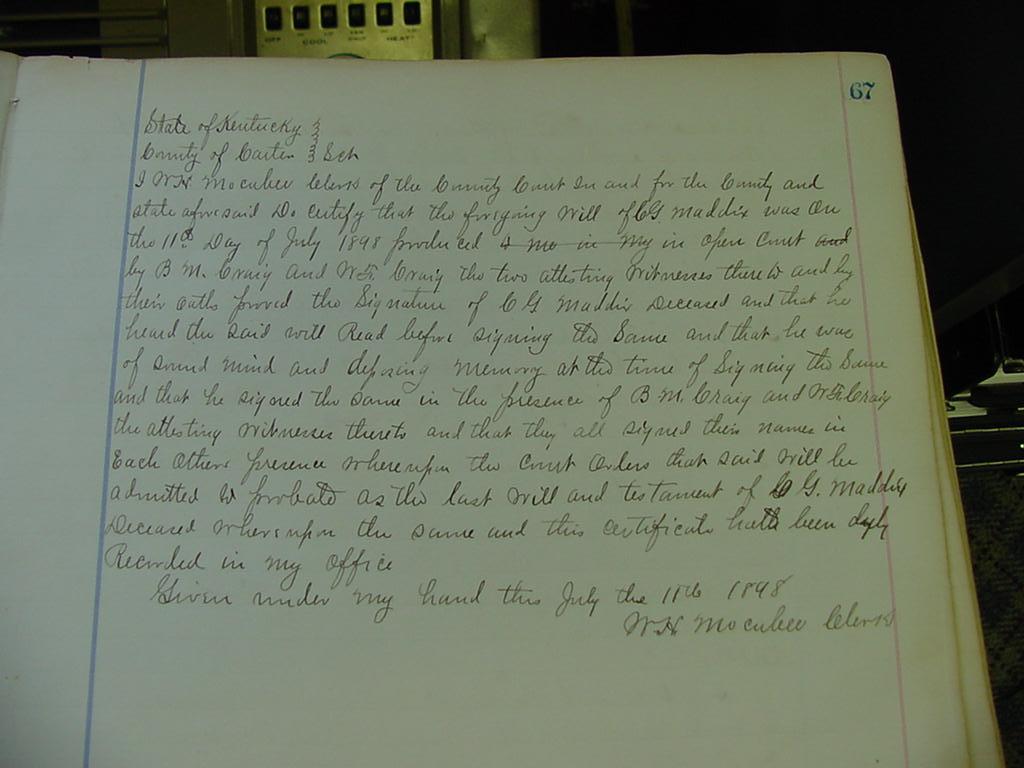 OFF COOL FAN ONLY HEAT
67
State of Kentucky }
County of Carter } Sct
I W.H. Mocabee Clerk of the County Court In and for the County and
state aforesaid Do certify that the foregoing Will of C G Maddix was on
the 11th Day of July 1898 produced in open Court
by B M. Craig and W F Craig the two attesting Witnesses thereto and by
their oaths proved the Signature of C G Maddix Deceased and that he
heard the said will Read before signing the Same and that he was
of sound mind and deposing memory at the time of Signing the Same
and that he signed the same in the presence of B M. Craig and W F Craig
the attesting Witnesses thereto and that they all signed their names in
Each Others presence whereupon the Court Orders that said Will be
admitted to probate as the last Will and testament of C G. Maddix
Deceased whereupon the same and this certificate hath been duly
Recorded in my office
Given under my hand this July the 11th 1898
W.H. Mocabee Clerk